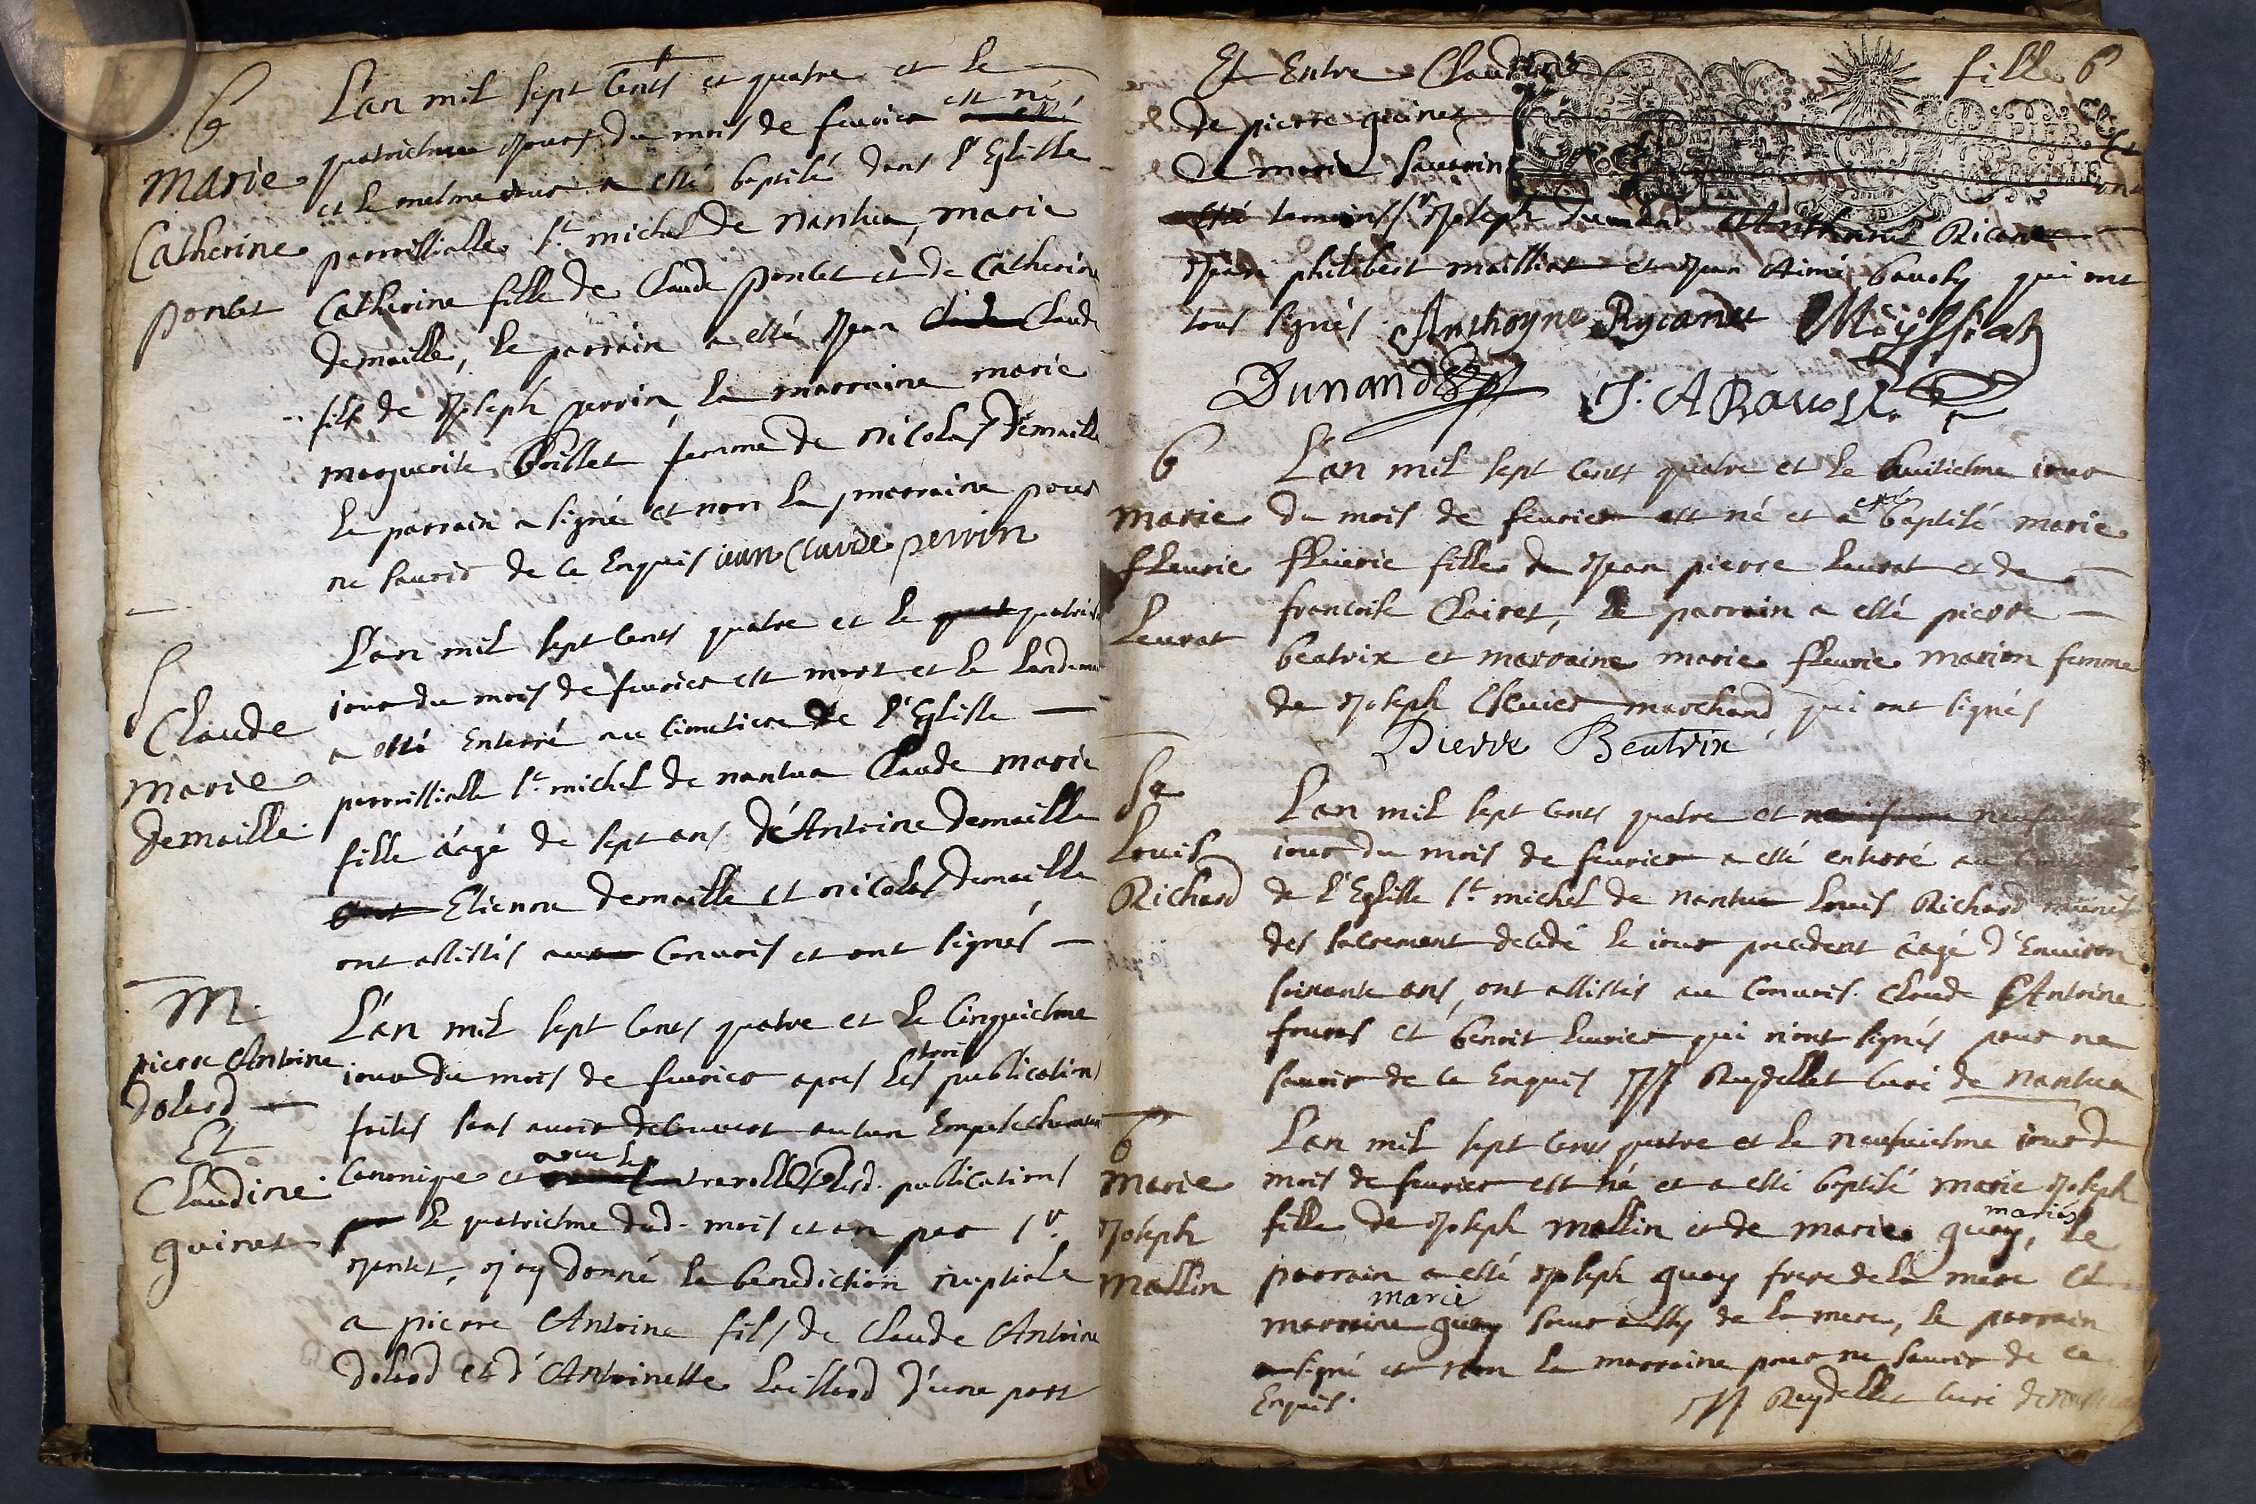 b
Marie
Catherine
ponlet
L'an mil sept cents et quatre et le
quatriesme jour du mois de feurier est né
et le mesme jour a esté baptisé dans l'Eglisse
parroissialle St michel de Nantua, marie
Catherine fille de Claude ponlet et de Catherine
demaille, le parrain a esté Jean Claude
fils de Joseph perrin, la marraine marie
marguerite femme de nicolas demaille
le parrain a signé et non la marraine pour
ne sauoir de ce Enquis jean Claude perrin
S
Claude
Marie
demaille
L'an mil sept cents quatre et le quatriesme
jour du mois de feurier est mort et le landemain
a esté Enterré au cimetiere de l'Eglisse
parroissialle St michel de nantua Claude marie
fille âagé de sept ans d'Antoine demaille
Etienne demaille et nicolas demaille
ont assistés au Conuois et ont signés
M.
pierre Antoine
dolerd
Et
Claudine
guinet
L'an mil sept cents quatre et le Cinquiesme
jour du mois de feurier apres les trois publications
faites sans auoir decouuert aucun Empeschement
Canonique et auec le Controlle desd. publications
le quatriesme dud. mois et an par Sr
j'ay donné la benediction nuptiale
a pierre Antoine fils de Claude Antoine
dolerd et d'Antoinette d'une part
Et Entre Claudine fille 6
de pierre guinet
de marie
temoins Sr Joseph dunand Anthoine Ricanet
Jean philibert mailliat et Jean Aimé bauoly qui ont
tous signés Anthoyne Rycanet
Dunand
b
Marie
fleurie
Leurat
L'an mil sept cents quatre et le huitiesme jour
du mois de feurier est né et a esté baptisé marie
fleurie fille de Jean pierre Leurat et de
francoise Clairet, le parrain a esté pierre
beatrix et marraine marie fleurie marion femme
de Joseph marchand qui ont signés
Pierre Beatrix
Se
Louis
Richard
L'an mil sept cents quatre et neufuiesme
jour du mois de feurier a esté enterré au
de l'Eglisse St michel de nantua Louis Richard munis
des sacrement decedé le jour precedent âagé d'Enuiron
soixante ans, ont assistés au Conuois Claude Antoine
et benoit qui n'ont signés pour ne
sauoir de ce Enquis Reydellet Curé de nantua
b
Marie
Joseph
Mallin
L'an mil sept cents quatre et le neufuiesme jour du
mois de feurier est né et a esté baptisé marie Joseph
fille de Joseph mallin et de marie guay, le
parrain a esté Joseph guay frere de la mere et
marraine marie guay soeur aussy de la mere, le parrain
a signé et non la marraine pour ne sauoir de ce
Enquis. Reydellet Curé de nantua